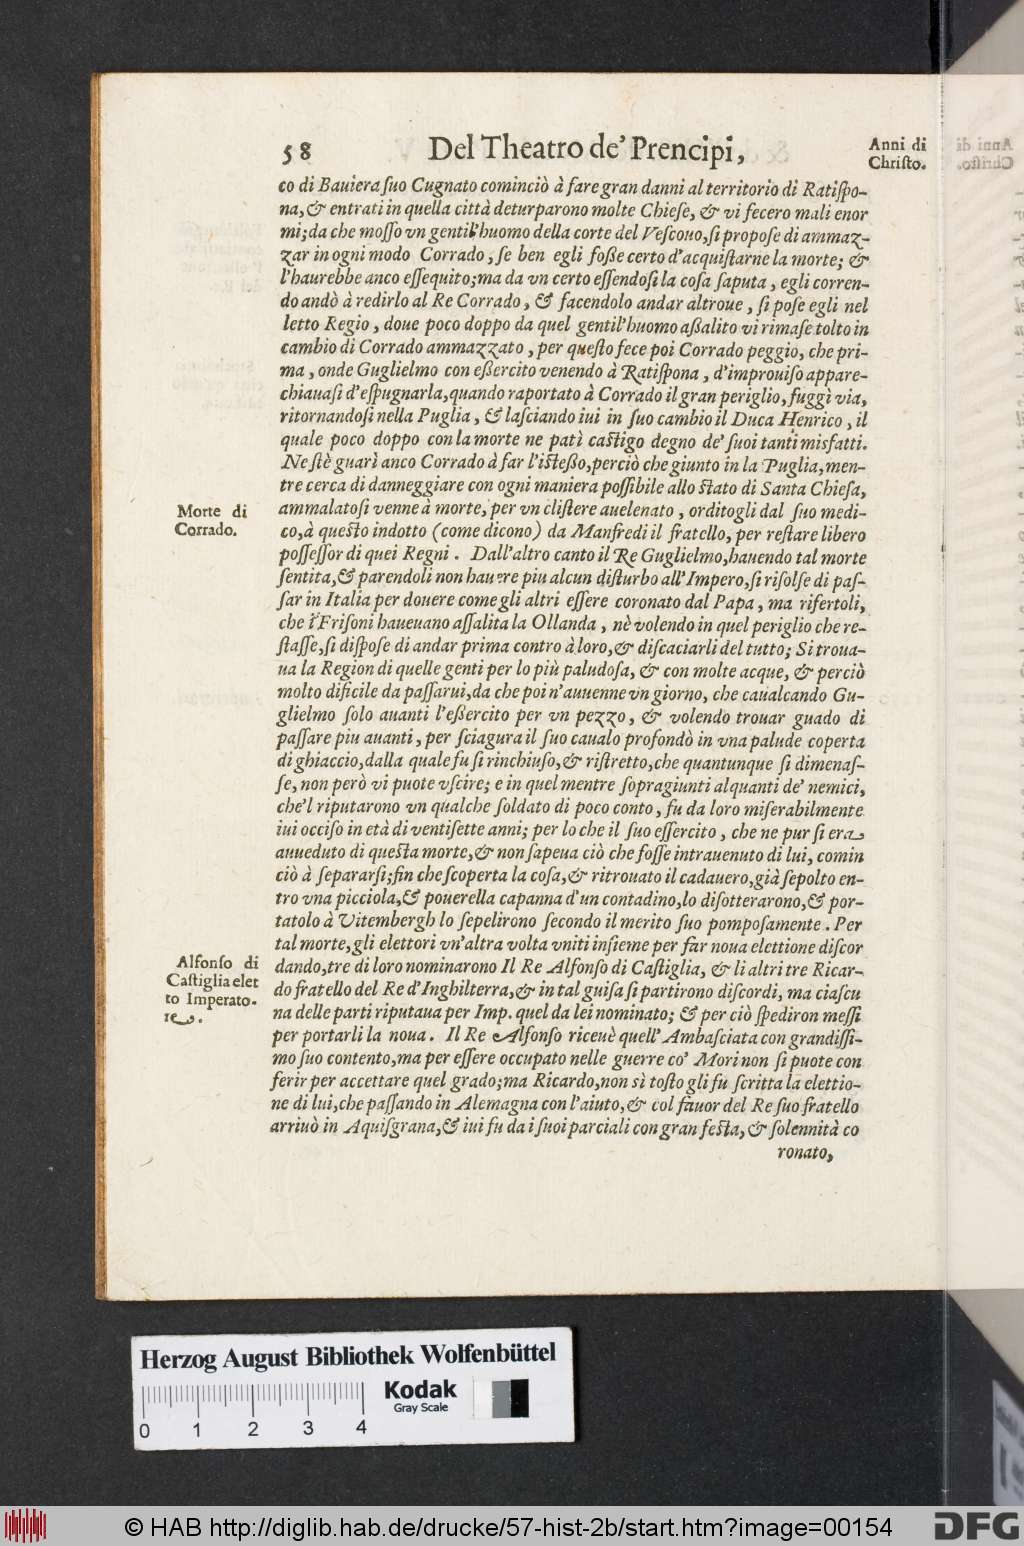 58 Del Theatro de' Prencipi,
Anni di
Christo.
co di Bauiera ſuo Cugnato cominciò à fare gran danni al territorio di Ratiſpo-
na, & entrati in quella città deturparono molte Chieſe, & vi fecero mali enor
mi; da che moſſo vn gentil'huomo della corte del Veſcouo, ſi propoſe di ammaz-
zar in ogni modo Corrado, ſe ben egli foße certo d'acquiſtarne la morte; &
l'haurebbe anco eſſequito; ma da vn certo eſſendoſi la coſa ſaputa, egli corren-
do andò à redirlo al Re Corrado, & facendolo andar altroue, ſi poſe egli nel
letto Regio, doue poco doppo da quel gentil'huomo aßalito vi rimaſe tolto in
cambio di Corrado ammazzato, per queſto fece poi Corrado peggio, che pri-
ma, onde Guglielmo con eßercito venendo à Ratiſpona, d'improuiſo appare-
chiauaſi d'eſpugnarla, quando raportato à Corrado il gran periglio, fuggì via,
ritornandoſi nella Puglia, & laſciando iui in ſuo cambio il Duca Henrico, il
quale poco doppo con la morte ne patì caſtigo degno de' ſuoi tanti misfatti.
Ne ſtè guarì anco Corrado à far l'iſteßo, perciò che giunto in la Puglia, men-
tre cerca di danneggiare con ogni maniera poſſibile allo ſtato di Santa Chieſa,
ammalatoſi venne à morte, per vn cliſtere auelenato, orditogli dal ſuo medi-
co, à queſto indotto (come dicono) da Manfredi il fratello, per reſtare libero
poſſeſſor di quei Regni. Dall'altro canto il Re Guglielmo, hauendo tal morte
ſentita, & parendoli non hauere piu alcun diſturbo all'Impero, ſi riſolſe di paſ-
ſar in Italia per douere come gli altri eſſere coronato dal Papa, ma rifertoli,
che i Friſoni haueuano aſſalita la Ollanda, nè volendo in quel periglio che re-
ſtaſſe, ſi diſpoſe di andar prima contro à loro, & diſcaciarli del tutto; Si troua-
ua la Region di quelle genti per lo più paludoſa, & con molte acque, & perciò
molto dificile da paſſarui, da che poi n'auuenne vn giorno, che caualcando Gu-
glielmo ſolo auanti l'eßercito per vn pezzo, & volendo trouar guado di
paſſare piu auanti, per ſciagura il ſuo caualo profondò in vna palude coperta
di ghiaccio, dalla quale fu ſi rinchiuſo, & riſtretto, che quantunque ſi dimenaſ-
ſe, non però vi puote vſcire; e in quel mentre ſopragiunti alquanti de' nemici,
che'l riputarono vn qualche ſoldato di poco conto, fu da loro miſerabilmente
iui occiſo in età di ventiſette anni; per lo che il ſuo eſſercito, che ne pur ſi era
auueduto di queſta morte, & non ſapeua ciò che foſſe intrauenuto di lui, comin
ciò à ſepararſi; fin che ſcoperta la coſa, & ritrouato il cadauero, già ſepolto en-
tro vna picciola, & pouerella capanna d'un contadino, lo diſotterarono, & por-
tatolo à Vitembergh lo ſepelirono ſecondo il merito ſuo pompoſamente. Per
tal morte, gli elettori vn'altra volta vniti inſieme per far noua elettione diſcor
dando, tre di loro nominarono Il Re Alfonſo di Caſtiglia, & li altri tre Ricar-
do fratello del Re d'Inghilterra, & in tal guiſa ſi partirono diſcordi, ma ciaſcu
na delle parti riputaua per Imp. quel da lei nominato; & per ciò ſpediron meſſi
per portarli la noua. Il Re Alfonſo riceuè quell'Ambaſciata con grandiſſi-
mo ſuo contento, ma per eſſere occupato nelle guerre co' Mori non ſi puote con
ferir per accettare quel grado; ma Ricardo, non sì toſto gli fu ſcritta la elettio-
ne di lui, che paſſando in Alemagna con l'aiuto, & col fauor del Re ſuo fratello
arriuò in Aquiſgrana, & iui fu da i ſuoi parciali con gran feſta, & ſolennità co
ronato,
Morte di
Corrado.
Alfonſo di
Caſtiglia elet
to Imperato-
re.
Herzog August Bibliothek Wolfenbüttel
0 1 2 3 4
Kodak
Gray Scale
© HAB http://diglib.hab.de/drucke/57-hist-2b/start.htm?image=00154
DFG